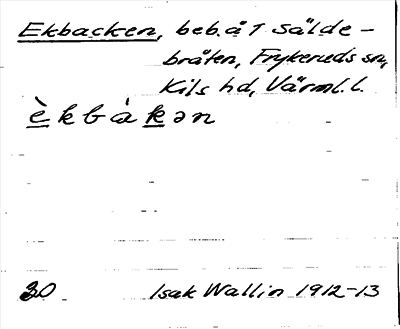 Ekbacken, beb. å 1 Sälde-
bråten, Frykeruds sn,
Kils hd, Värml. l.
èkbàkən
30 Isak Wallin 1912-13